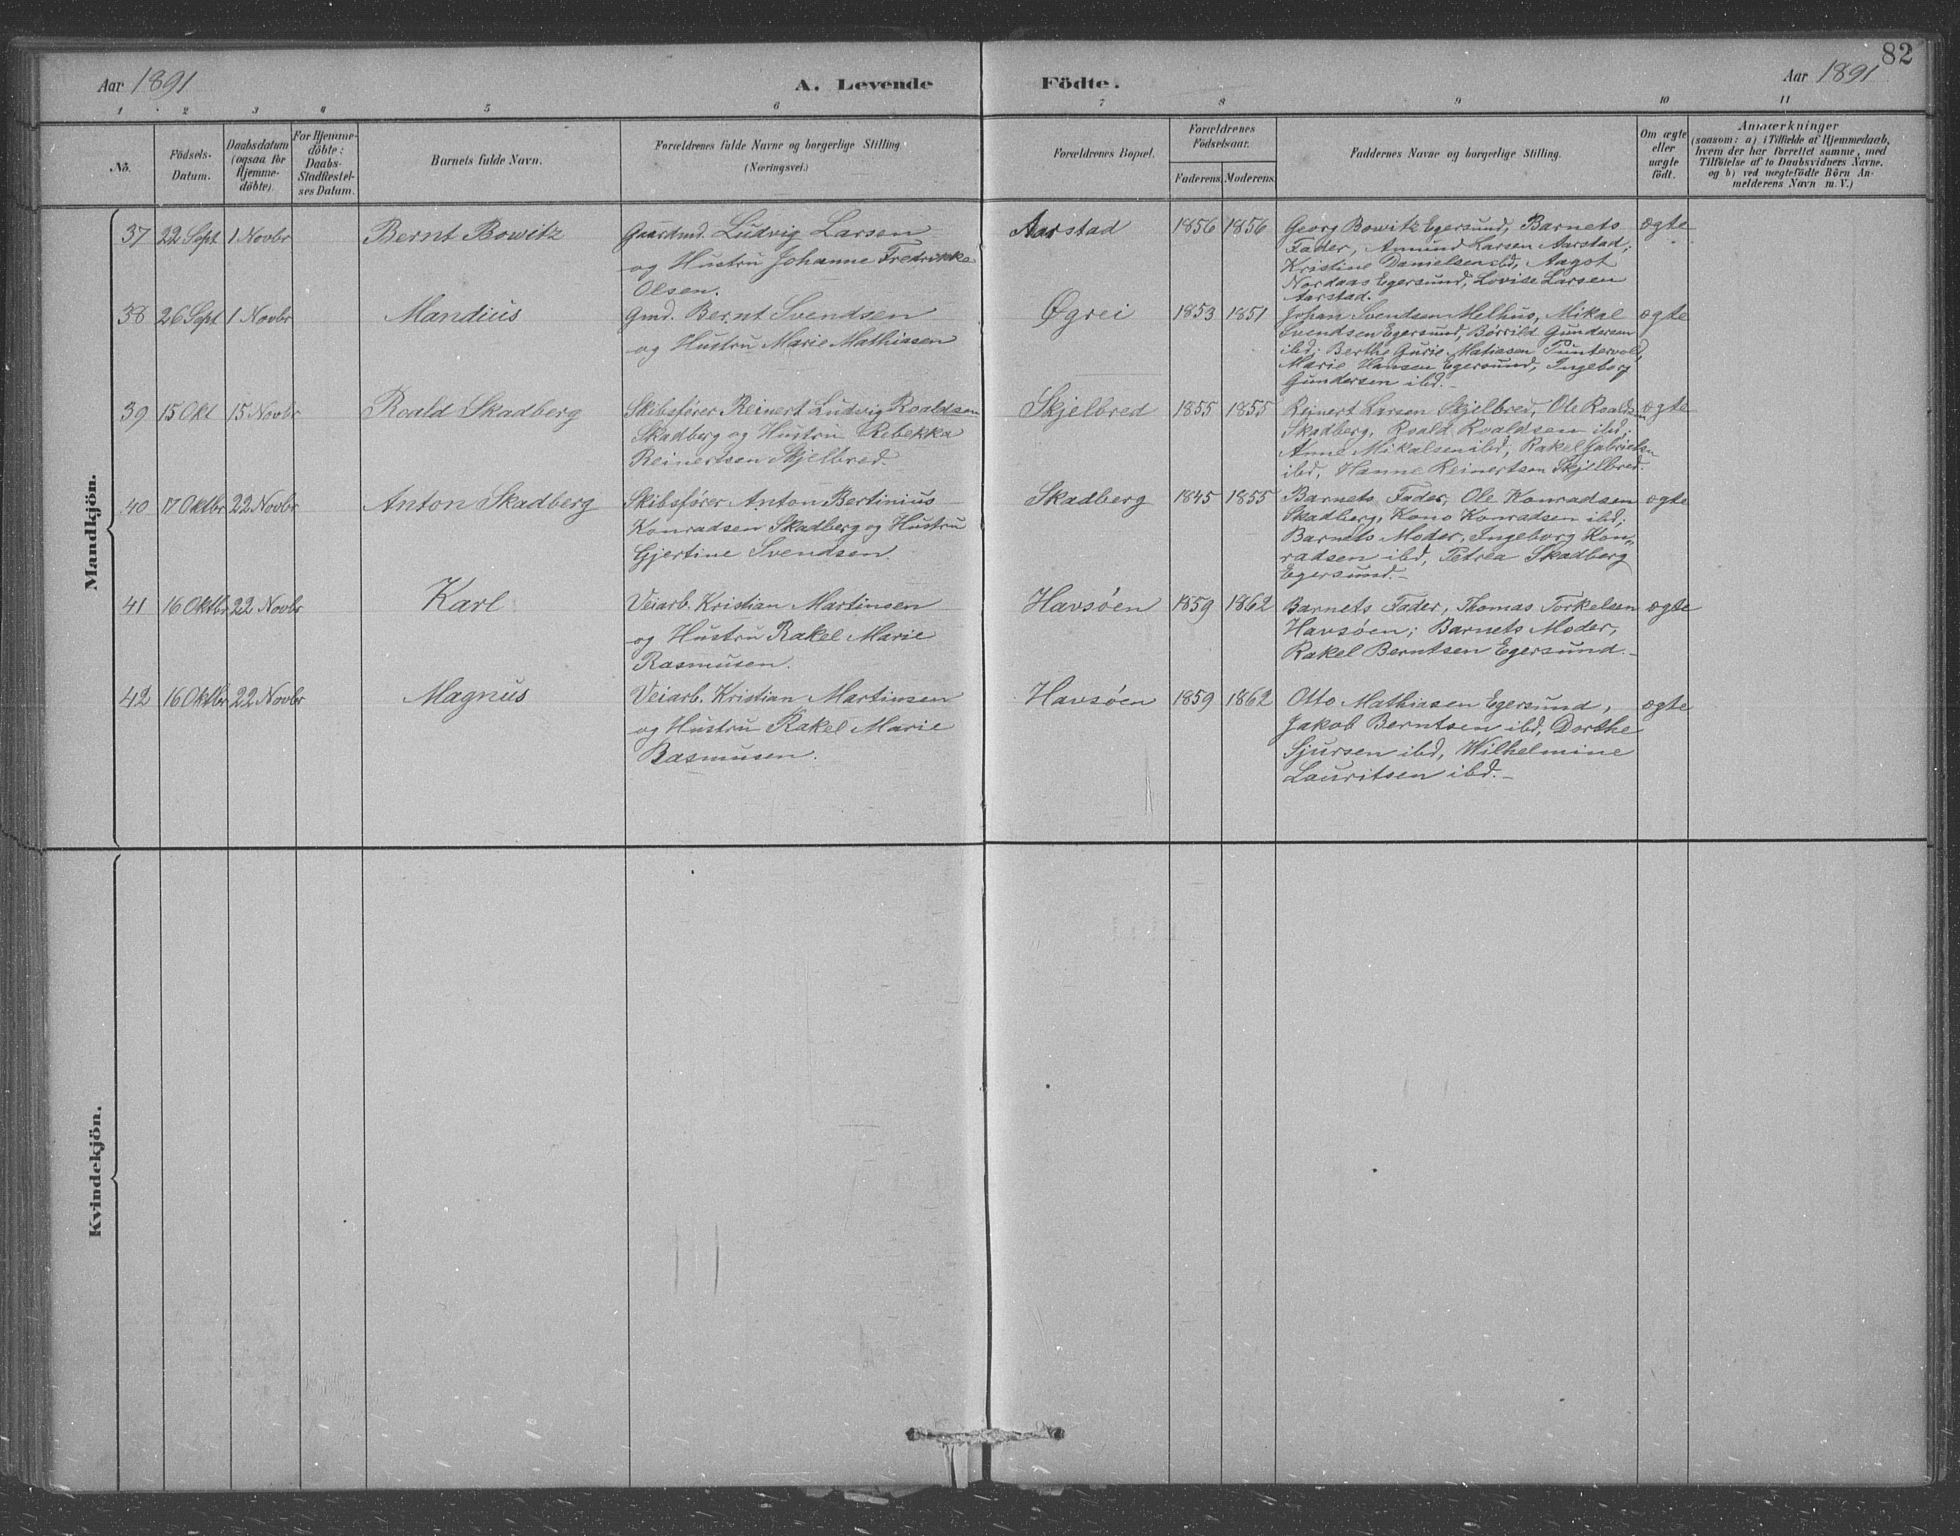 82
Aar 1891
A. Levende Födte.
Aar 1891
1 2 3 4 5 6 7 8 9 10 11
No.
Födsels-
Datum.
Daabsdatum
(ogsaa for
Hjemme-
döbte).
For Hjemme-
döbte:
Daabs-
Stadfæstel-
ses Datum.
Barnets fulde Navn.
Forældrenes fulde Navne og borgerlige Stilling.
(Næringsvei.)
Forældrenes Bopæl.
Forældrenes
Födselsaar.
Faderens. Moderens.
Faddernes Navne og borgerlige Stilling.
Om ægte
eller
uægte
födt.
Anmærkninger
(saasom: a) i Tilfælde af Hjemmedaab,
hvem der har forrettet samme, med
Tilföielse af to Daabsvidners Navne,
og b) ved uægtefödte Börn An-
melderens Navn m. V.)
Mandkjön.
37 22 Sept 1 Novbr Bernt Bowitz
Gaardmd. Ludvig Larsen
og Hustru Johanne Fredrikke
Olsen.
Aarstad 1856 1856
Georg Bowitz Egersund, Barnets
Fader, Amund Larsen Aarstad;
Kristine Danielsen ibd, Aagot
Nordaas Egersund, Lovise Larsen
Aarstad.
ægte
38 26 Sept 1 Novbr Mandius
Gmd. Bernt Svendsen
og Hustru Marie Mathiasen
Øgrei 1853 1851
Johan Svendsen Melhus, Mikal
Svendsen Egersund, Børrild Gundersen
ibd; Berthe Gurie Matiasen Tuntervold,
Marie Hansen Egersund, Ingeborg
Gundersen ibd.
ægte
39 15 Okt 15 Novbr Roald Skadberg
Skibsfører Reinert Ludvig Roaldsen
Skadberg og Hustru Rebekka
Reinertsen Skjelbred.
Skjelbred 1855 1855
Reinert Larsen Skjelbred, Ole Roaldsen
Skadberg, Roald Roaldsen ibd;
Anne Mikalsen ibd, Rakel Gabrielsen
ibd, Hanne Reinertsen Skjelbred.
ægte
40 17 Oktbr 22 Novbr Anton Skadberg
Skibsfører Anton Bertinius
Konradsen Skadberg og Hustru
Gjertine Svendsen.
Skadberg 1845 1855
Barnets Fader, Ole Konradsen
Skadberg, Kono Konradsen ibd;
Barnets Moder, Ingeborg Kon-
radsen ibd, Petrea Skadberg
Egersund.
ægte
41 16 Oktbr 22 Novbr Karl
Veiarb. Kristian Martinsen
og Hustru Rakel Marie
Rasmusen.
Havsøen 1859 1862
Barnets Fader, Thomas Torkelsen
Havsøen; Barnets Moder,
Rakel Berntsen Egersund.
ægte
42 16 Oktbr 22 Novbr Magnus
Veiarb. Kristian Martinsen
og Hustru Rakel Marie
Rasmusen.
Havsøen 1859 1862
Otto Mathiasen Egersund,
Jakob Berntsen ibd, Dorthe
Sjursen ibd, Wilhelmine
Lauritsen ibd.
ægte
Kvindekjön.